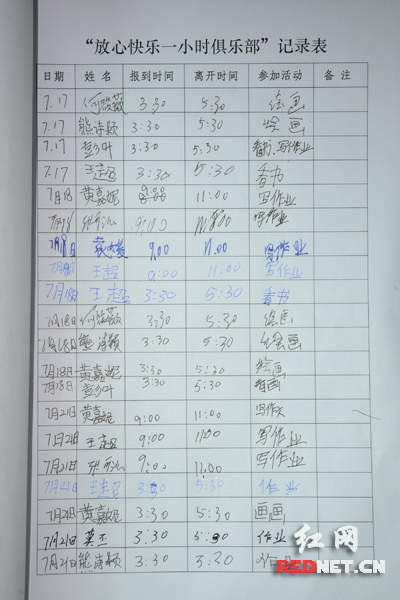 “放心快乐一小时俱乐部”记录表
日期 姓名 报到时间 离开时间 参加活动 备注
7.17 何骏薇 3:30 5:30 绘画
7.17 熊诗颖 3:30 5:30 绘画
7.17 3:30 5:30 看书、写作业
7.17 王超 3:30 5:30 看书
7月18 黄嘉妮 9:00 11:00 写作业
7月18 9:00 11:00 写作业
7月18日 9:00 11:00 写作业
7月18日 王超 9:00 11:00 写作业
7月18日 王超 3:30 5:30 看书
7月18日 何骏薇 3:30 5:30 绘画
7月18日 熊诗颖 3:30 5:30 绘画
7月18日 黄嘉妮 3:30 5:30 绘画
7月18日 3:30 5:30 看画
7月21日 黄嘉妮 9:00 11:00 写作
7月21日 王超 9:00 11:00 写作业
7月21日 9:00 11:00 写作业
7月21日 王超 3:30 5:30 作业
7月21日 黄嘉妮 3:30 5:30 画画
7月21日 莫杰 3:30 5:30 作业
7月21日 熊诗颖 3:30 5:30 作业
红网
REDNET.CN